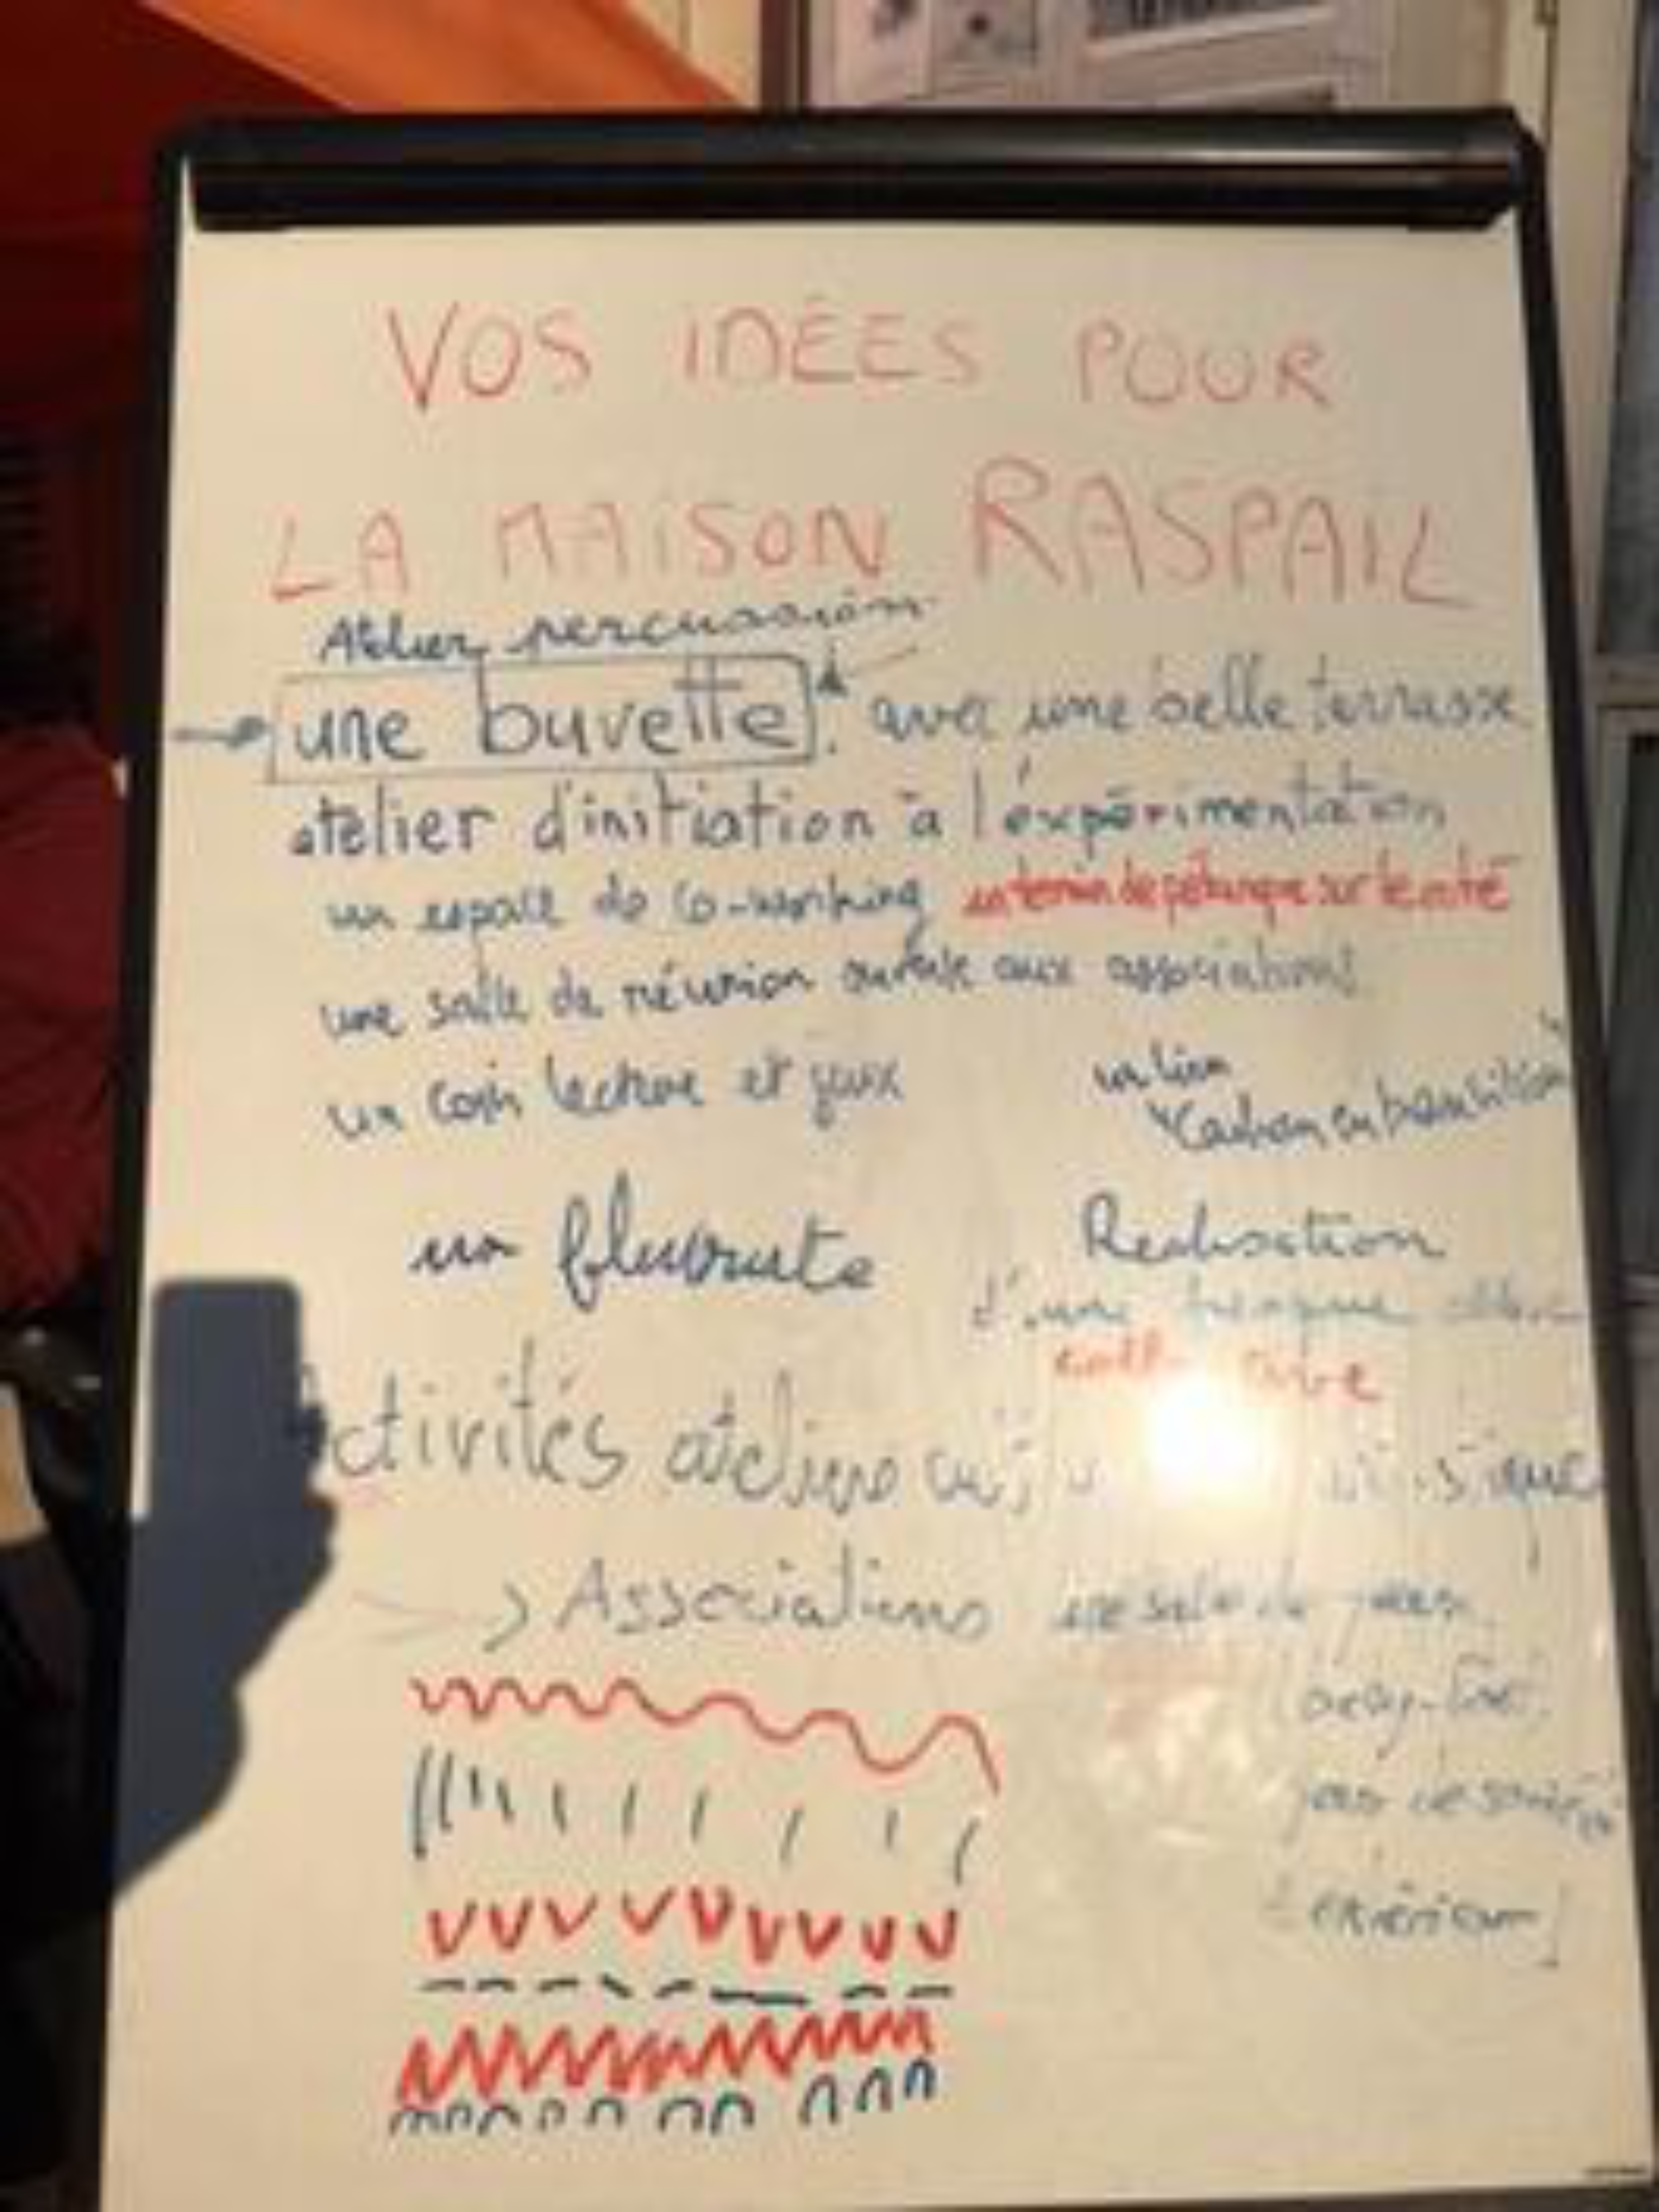 VOS IDÉES POUR
LA MAISON RASPAIL
Atelier percussion
une buvette avec une belle terrasse
atelier d'initiation à l'expérimentation
un espace de co-working un terrain de pétanque sur le côté
une salle de réunion ouverte aux associations
un coin lecture et jeux
un lien
Cachan en transition
un
Réalisation
d'une fresque
Activités ateliers
> Associations
une salle de
pour
extérieur]